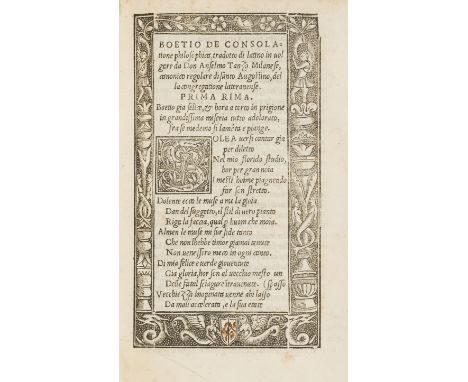 BOETIO DE CONSOLA-
tione philosophica, tradotto di latino in uol
gare da Don Anselmo Tanzo Milanese,
canonico regolare di santo Augustino, del
la congregatione lateranense.
PRIMA RIMA.
Boetio gia felice, & hora a torto in prigione
in grandissima miseria tutto adolorato,
fra se medemo si lamẽta e piange.
SOLEA uersi cantar gia
per diletto
Nel mio florido studio,
hor per gran noia
I mesti hoime piagnendo
far son stretto.
Dolente ecco le muse a me la gioia
Dan del suggetto, el stil di uero pianto
Riga la faccia, qual huom che moia.
Almen le muse mi fur fide tanto
Che non hebbe timor giamai tenute
Non uenessero meco in ogni canto.
Di mia felice e uerde giouentute
Gia gloria, hor son al uecchio mesto un
Delle fatal sciagure
Vecchiezza inopinata uenne ahi lasso
Da mali accelerata, e la sua etate